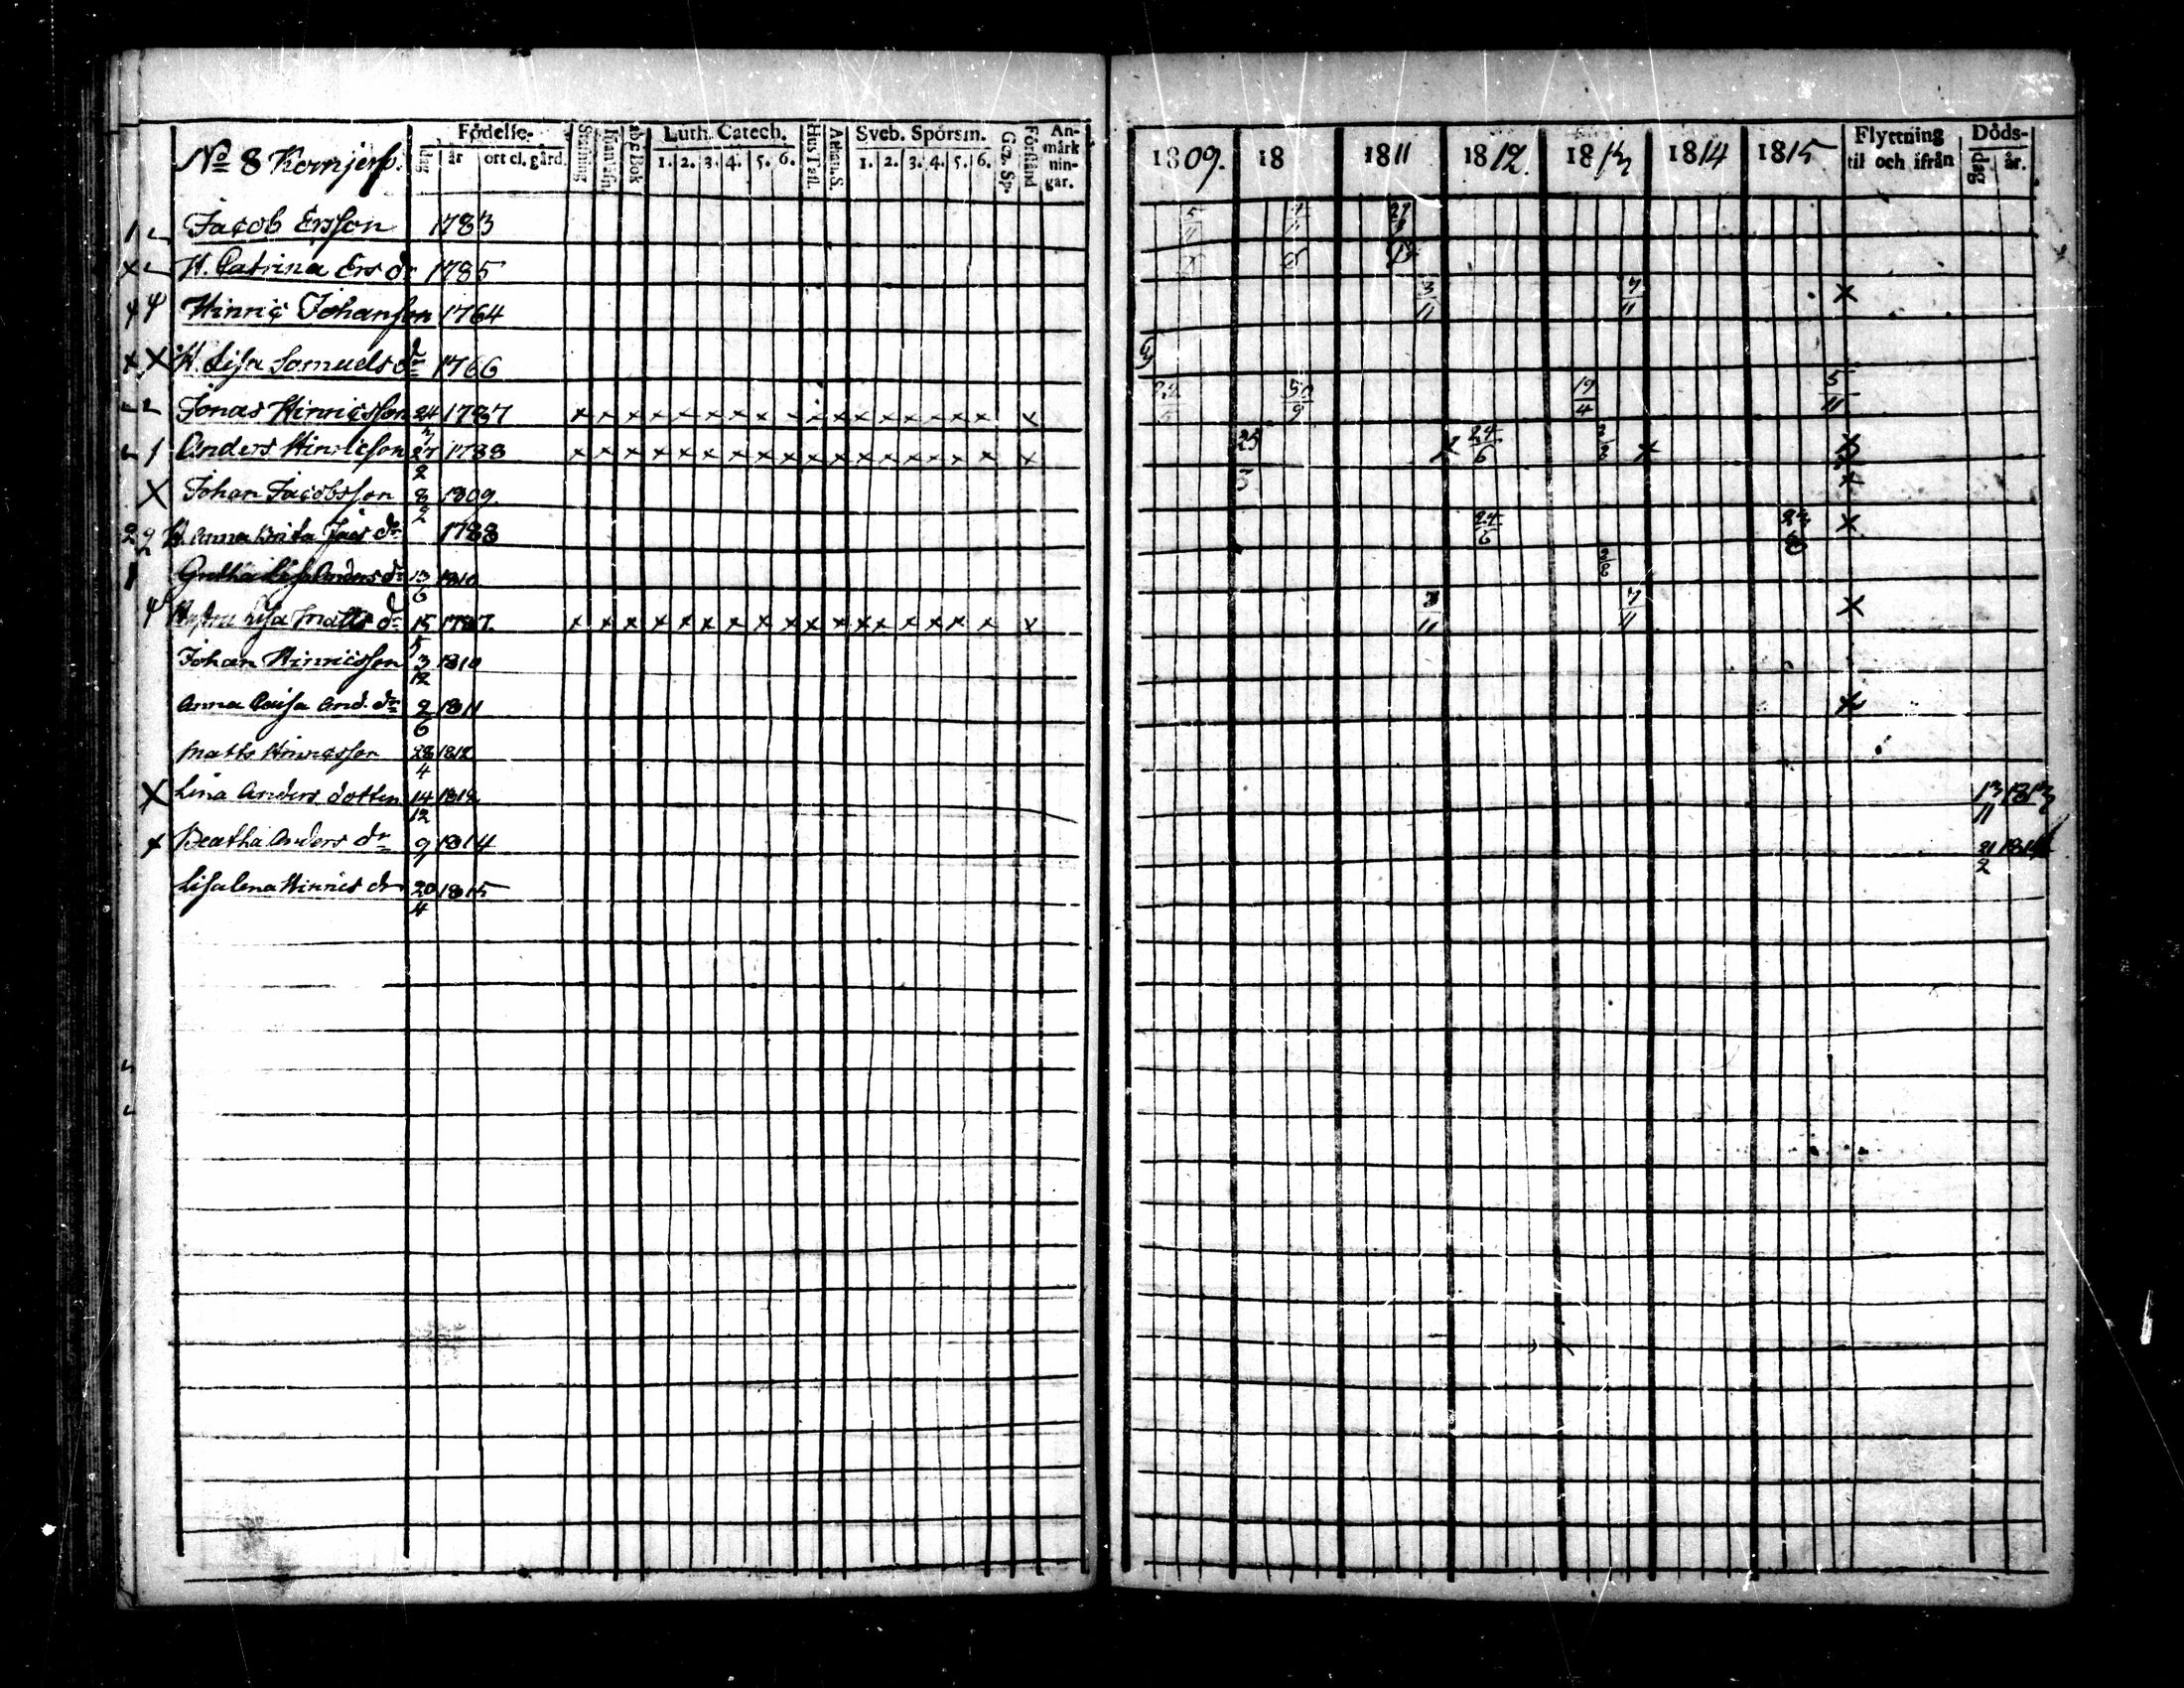 No 8 Kornjerf.
Födelse-
dag år ort el. gård.
Stafning Innan'afn Abc Bok
Luth. Catech.
1. 2. 3. 4. 5. 6.
Hus Tafl. Athan. S.
Sveb. Spörsm.
1. 2. 3. 4. 5. 6.
Gez. Sp. Förstånd
An-
märk
nin-
gar.
1809. 18 1811 1812. 1813 1814 1815
Flyttning
til och ifrån
Döds-
dag år.
Jacob Ersson 1783 5/11
H. Catrina Ers dr 1785
Hinric Johansson 1764 3/11 7/11 x
x X H. Lisa Samuels dr 1766
Jonas Hinricsson 24 1787 x x x x x x x x x x x x x x x x x x 30/9 19/4 5/11
Anders Hinricson 27/2 1788 x x x x x x x x x x x x x x x x x x 25/3 x 24/6 2/2 x x
X Johan Jacobsson 8/2 1809. x
2 2 H. Anna Brita Jacs dr 1788 24/6 x
1 Gretha Lisa Anders dr 13/6 1810 2/2
Lisa Matts dr 15/5 1787. x x x x x x x x x x x x x x x x x x 3/11 7/11 x
Johan Hinricsson 3/12 1810
Anna Caisa And. dr 2/6 1811 x
Matts Hinricsson 28/4 1812
X Lina Anders dotter 14/12 1812 13/11 1813
x Beatha Anders dr 9/1 1814 21/2 1814
Lisa Lena Hinrics dr 20/4 1815